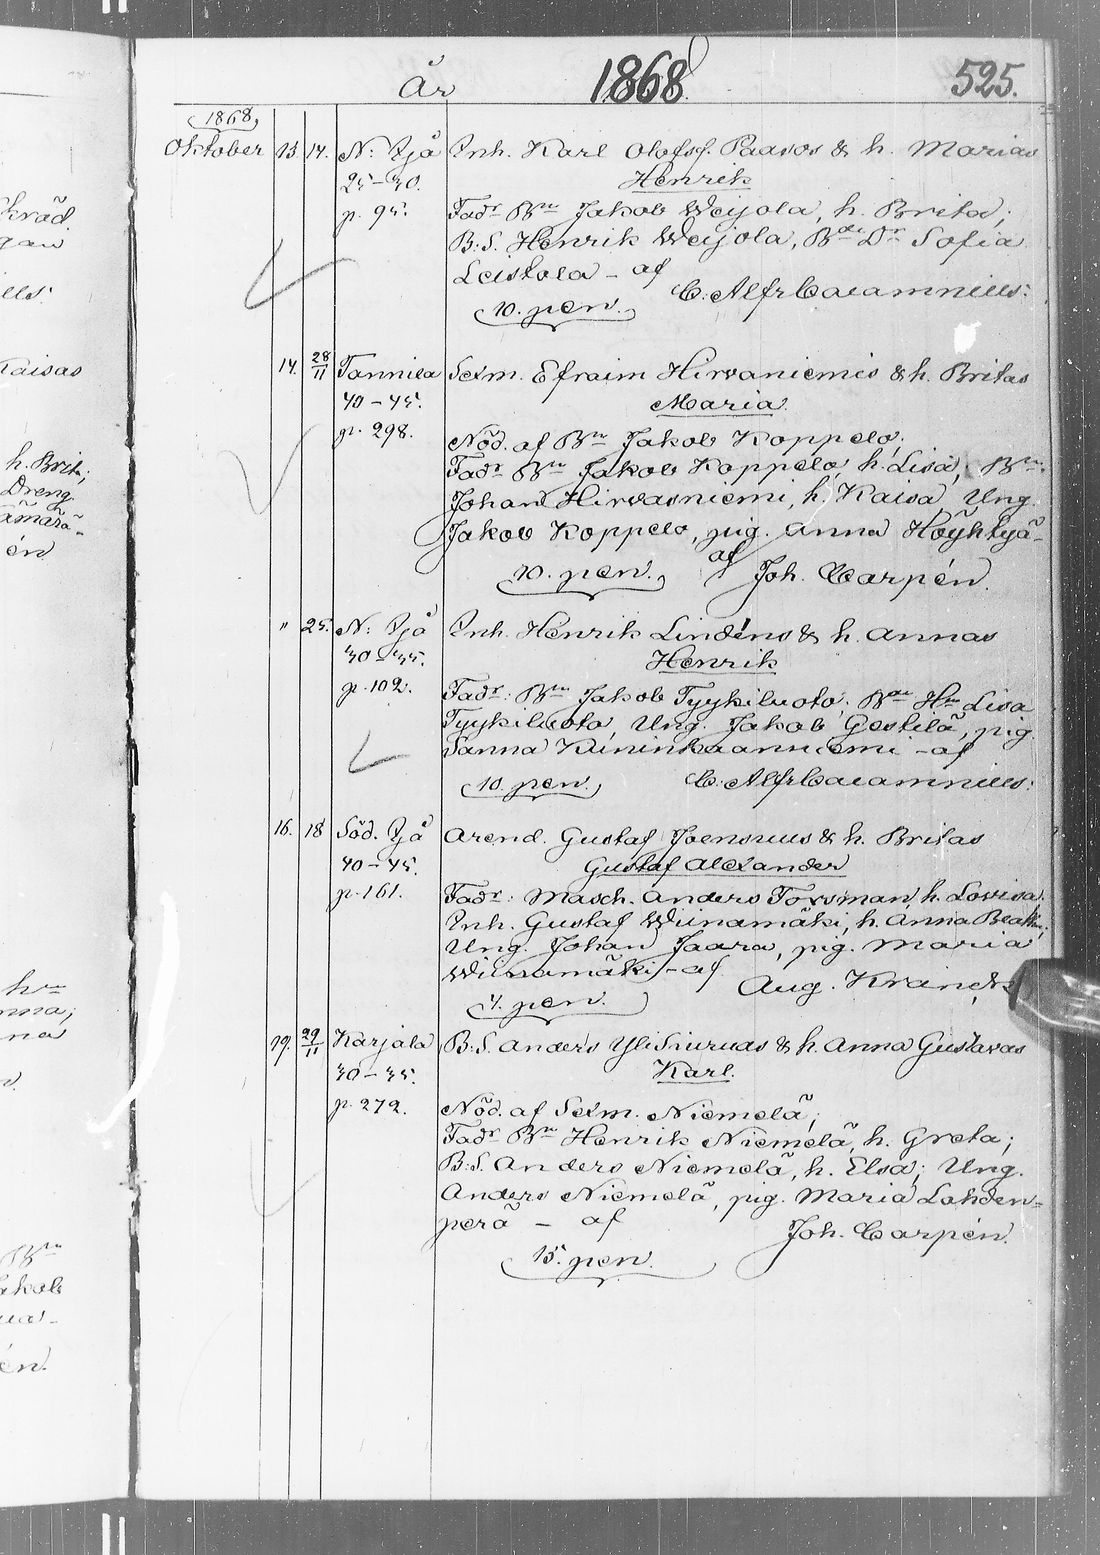 År 1868 525.
1868
Oktober 13. 17. N: Ijå Inh. Karl Olofsf. Paasos & h. Marias
25-30. Henrik
p. 95. Fadr Bn Jakob Weijola, h. Brita;
B.S. Henrik Weijola, Bde Dr Sofia
Leiskola - af
10. pen. C. Alfr Calamnius:
14. 28/11 Tannila Sexm. Efraim Hirvaniemis & h. Britas
40-45. Maria.
p. 298. Nöd. af Bn Jakob Koppelo;
Fadr Bn Jakob Koppelo, h. Lisa; Bn
Johan Hirvasniemi, h. Kaisa, Ung.
Jakob Koppelo, pig. Anna Höyhtyä-
10. pen. af Joh. Carpén.
" 25. N: Ijå Inh. Henrik Lindéns & h. Annas
30-35. Henrik
p. 102. Fadr: Bn Jakob Tyykiluoto; Bde Hn Lisa
Tyykiluoto, Ung. Jakob Gestilä, pig.
Sanna Kuninkaanniemi - af
10. pen. C. Alfr Calamnius:
16. 18 Söd. Ijå Arend. Gustaf Joensuus & h. Britas
40-45. Gustaf Alexander
p. 161. Fadr: Masch. Anders Forsman, h. Lovisa;
Inh. Gustaf Wiinamäki, h. Anna Beata;
Ung. Johan Jaara, pig. Maria
Wiinamäki - af
7. pen. Aug. Krank
19. 29/11 Karjala B.S. Anders YliSiuruas & h. Anna Gustavas
30-35. Karl.
p. 272. Nöd. af Sexm. Niemelä;
Fadr Bn Henrik Niemelä, h. Greta;
B.S. Anders Niemelä, h. Elsa; Ung.
Anders Niemelä, pig. Maria Lahden=
perä - af Joh. Carpén.
15. pen.